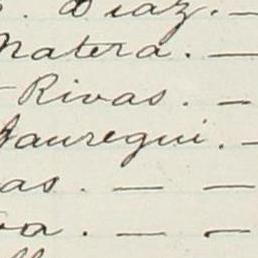 . Diaz. —
Matera. —
- Rivas. —
Jauregui. -
as. — —
va. — —